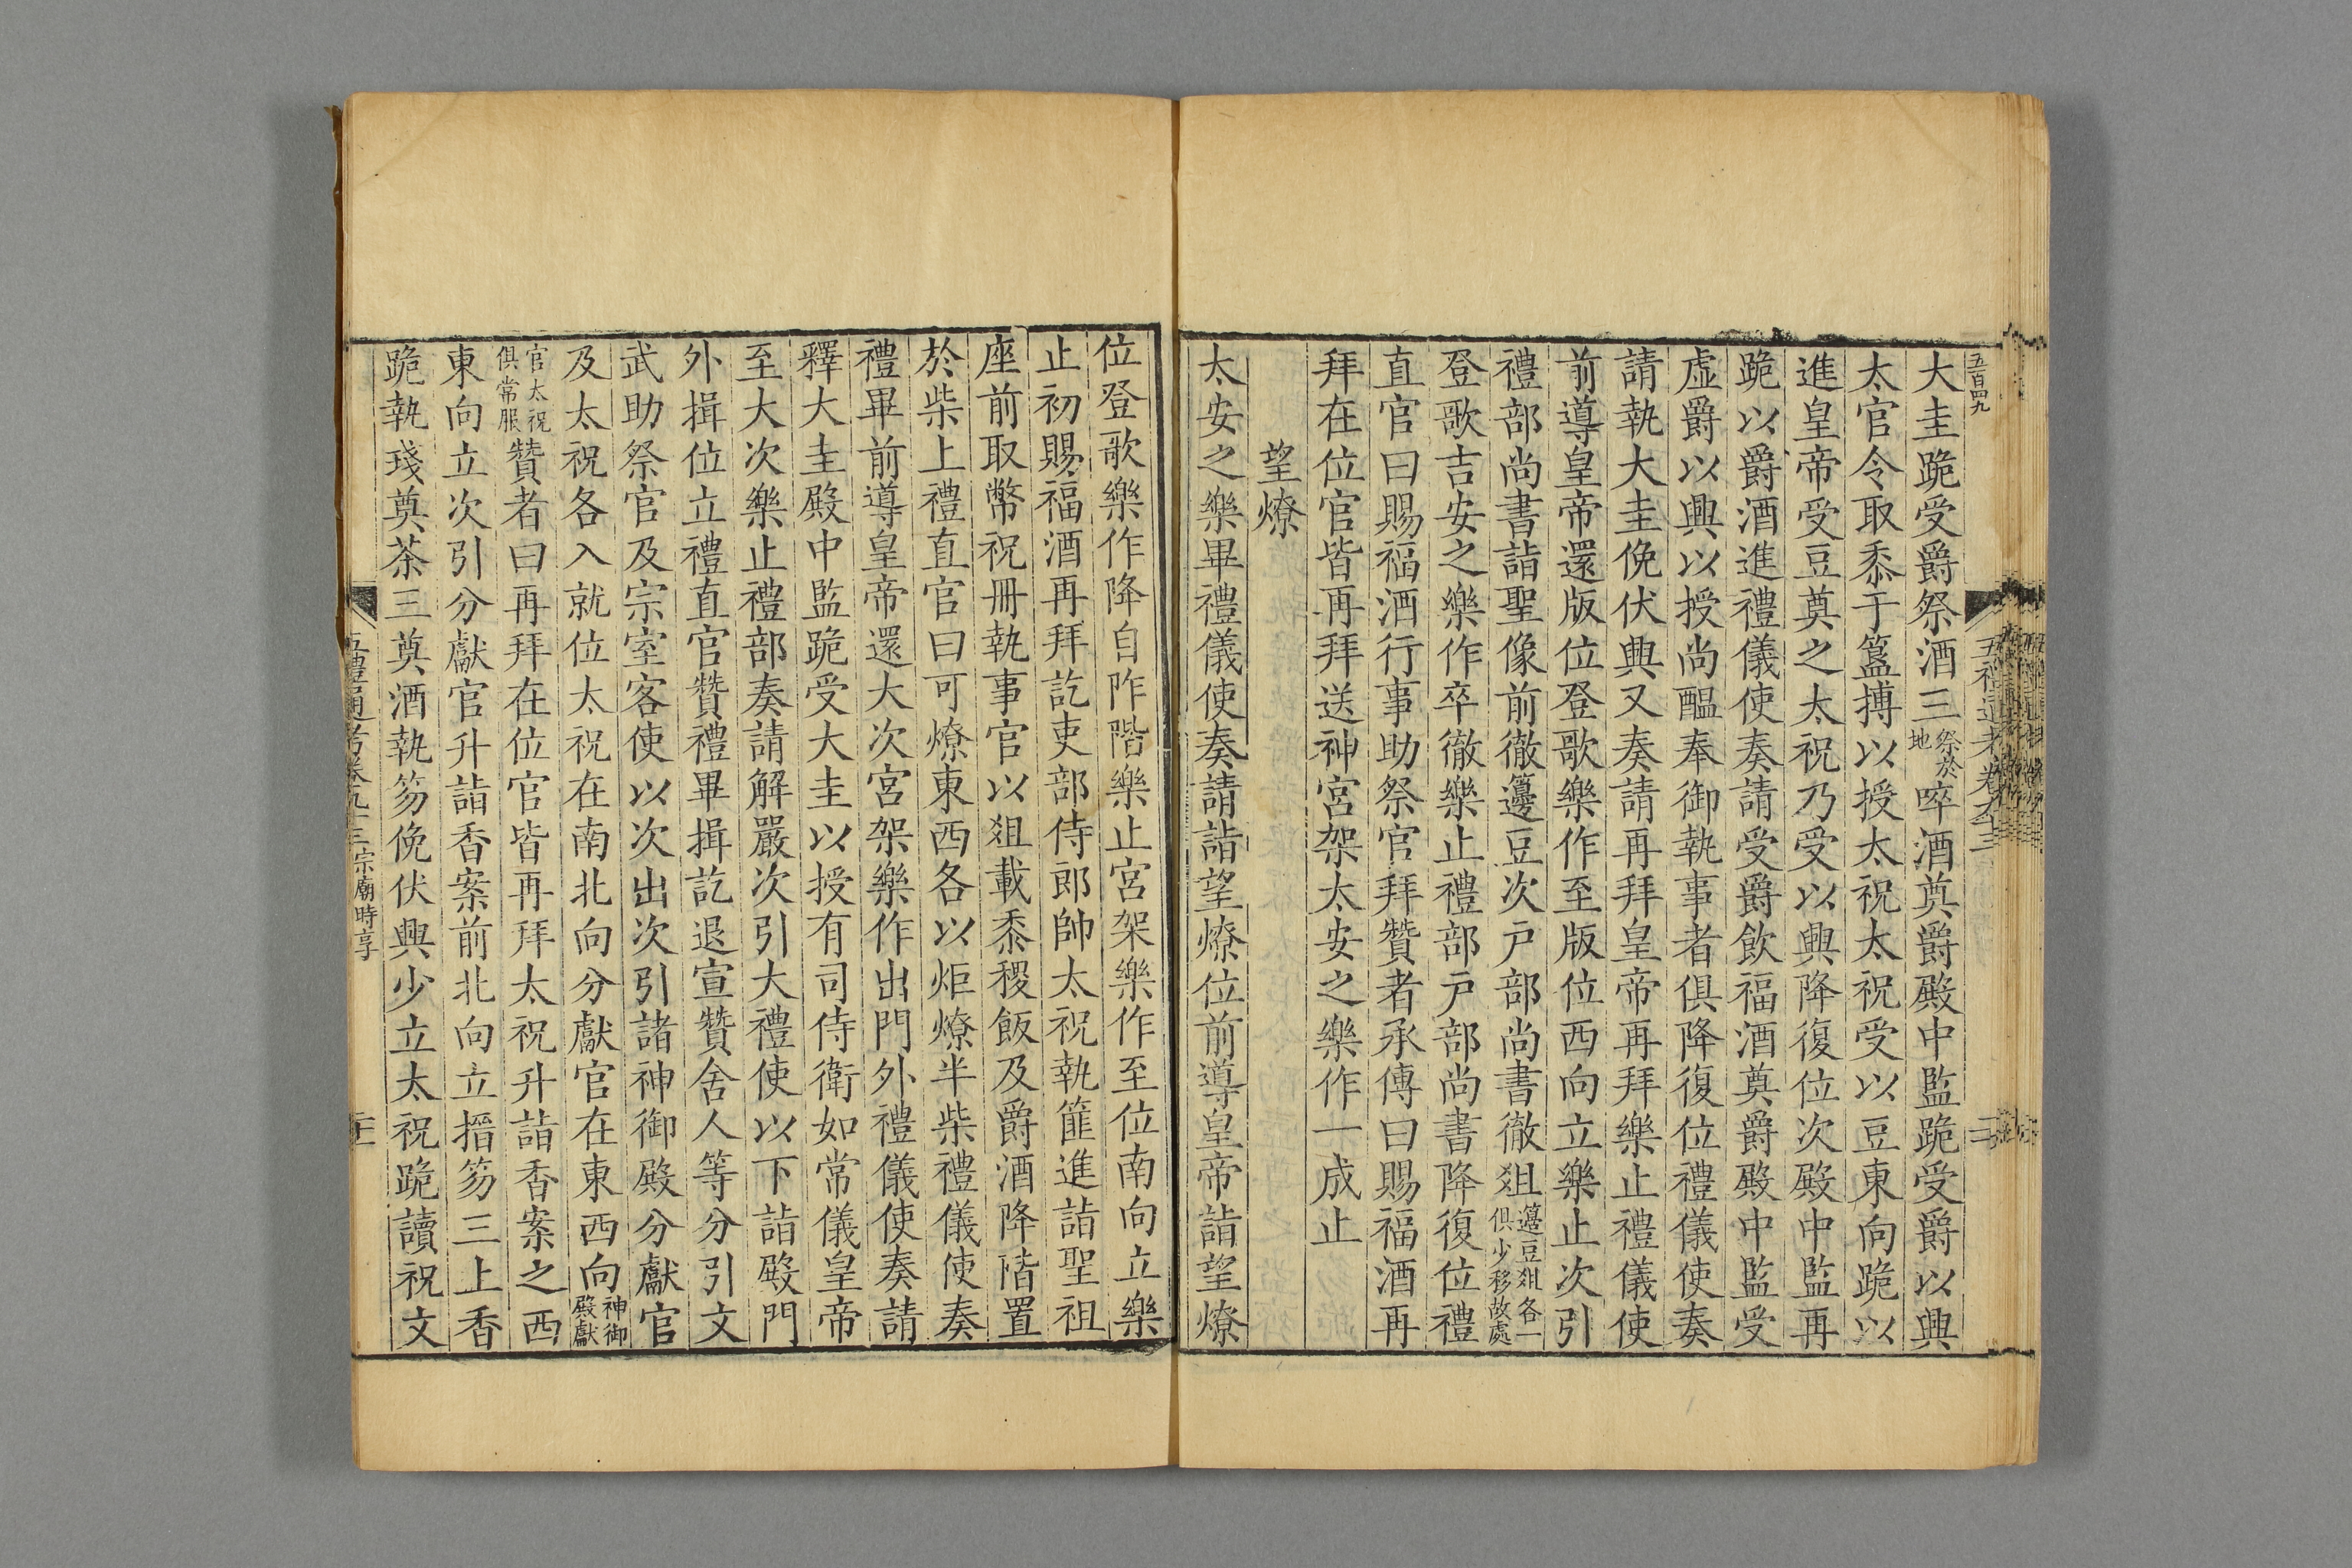 五百四九
大圭跪受爵祭酒三祭於地啐酒奠爵殿中監跪受爵以興
太官令取黍于簋搏以授太祝太祝受以豆東向跪以
進皇帝受豆奠之太祝乃受以興降復位次殿中監再
跪以爵酒進禮儀使奏請受爵飲福酒奠爵殿中監受
虛爵以興以授尚醞奉御執事者俱降復位禮儀使奏
請執大圭俛伏興又奏請再拜皇帝再拜樂止禮儀使
前導皇帝還版位登歌樂作至版位西向立樂止次引
禮部尚書詣聖像前徹籩豆次戸部尚書徹俎籩豆俎各一俱少移故處
登歌吉安之樂作卒徹樂止禮部戸部尚書降復位禮
直官曰賜福酒行事助祭官拜贊者承傳曰賜福酒再
拜在位官皆再拜送神宮架太安之樂作一成止
望燎
太安之樂畢禮儀使奏請詣望燎位前導皇帝詣望燎
位登歌樂作降自阼階樂止宮架樂作至位南向立樂
止初賜福酒再拜訖吏部侍郎帥太祝執篚進詣聖祖
座前取幣祝冊執事官以俎載黍稷飯及爵酒降階置
於柴上禮直官曰可燎東西各以炬燎半柴禮儀使奏
禮畢前導皇帝還大次宮架樂作出門外禮儀使奏請
釋大圭殿中監跪受大圭以授有司侍衛如常儀皇帝
至大次樂止禮部奏請解嚴次引大禮使以下詣殿門
外揖位立禮直官贊禮畢揖訖退宣贊舍人等分引文
武助祭官及宗室客使以次出次引諸神御殿分獻官
及太祝各入就位太祝在南北向分獻官在東西向神御殿獻
官太祝俱常服贊者曰再拜在位官皆再拜太祝升詣香案之西
東向立次引分獻官升詣香案前北向立搢笏三上香
跪執琖奠茶三奠酒執笏俛伏興少立太祝跪讀祝文
五禮通考卷九十三宗廟時享